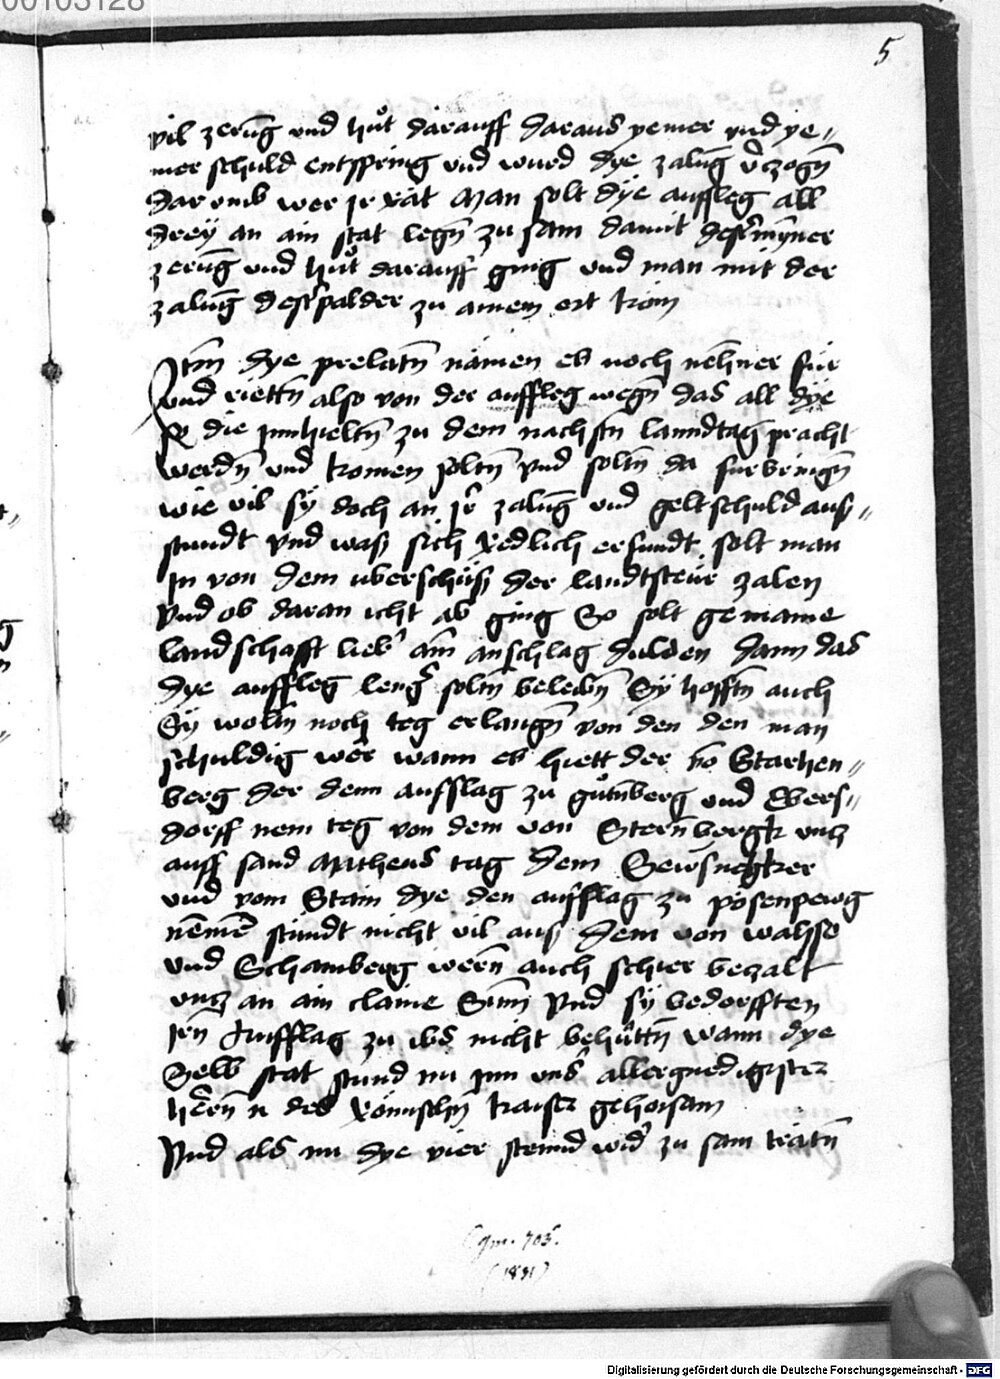 00103128
5
vil zerug̃ und hůt darauff daraus yemer vnd ye„
mer schuld entspring vnd wurd dye zalug̃ v̉zogn̄
dar vmb wer jr rat Man solt dye auffleg all
drey an ain stat legn̄ zu sam damit dest mynner
zerug̃ vnd hůt darauff ging vnd man mit der
zalug̃ dest palder zu ainem ort kom
Itm̄ dye prelatn̄ namen es noch nehner für
vnd riettn̄ also von der auffleg wegn̄ das all dye
so die jnnhieltn̄ zu dem nachstn̄ lanndtag pracht
werdn̄ vnd komen soltn̄ vnd soltn̄ da furbringn̄
wie vil sy doch an jr̉ zalug̃ vnd geltschuld aus„
stundt vnd was sich redlich erfundt solt man
jn von dem uberschuss der landtsteur zalen
Vnd ob daran icht ab ging So solt gemaine
landschafft lieb̉ ain anschlag dulden dann das
dye auffleg leng̉ soltn̄ beleibn̄ Sy hofftn̄ auch
Sy woltn̄ noch teg erlangn̄ von den den man
schuldig wer wann es hiett der vō Starhen„
berg der denn aufslag zu gůtnberg und Ebers„
dorff nem teg von dem von Sternbergk vncz
auff sand Matheus tag dem
vnd vom Stain dye den aufslag zu posenpewg
nemēn stundt nicht vil aus dem von walsse
vnd Schamberg wern̄ auch schier beczalt
vncz an ain claine Sum̄ Vnd sy bedorfften
jrn̄ Aufslag zu ybs nicht behuttn̄ wann dye
Selb stat stund nu jnn vns̉ allergnedigister
hern̄ n des Romischn̄ kaiser gehorsam
Vnd als nu dye vier stennd wid̉ zu sam tratn̄
Cgm. 705.
(1831)
Digitalisierung gefördert durch die Deutsche Forschungsgemeinschaft - DFG